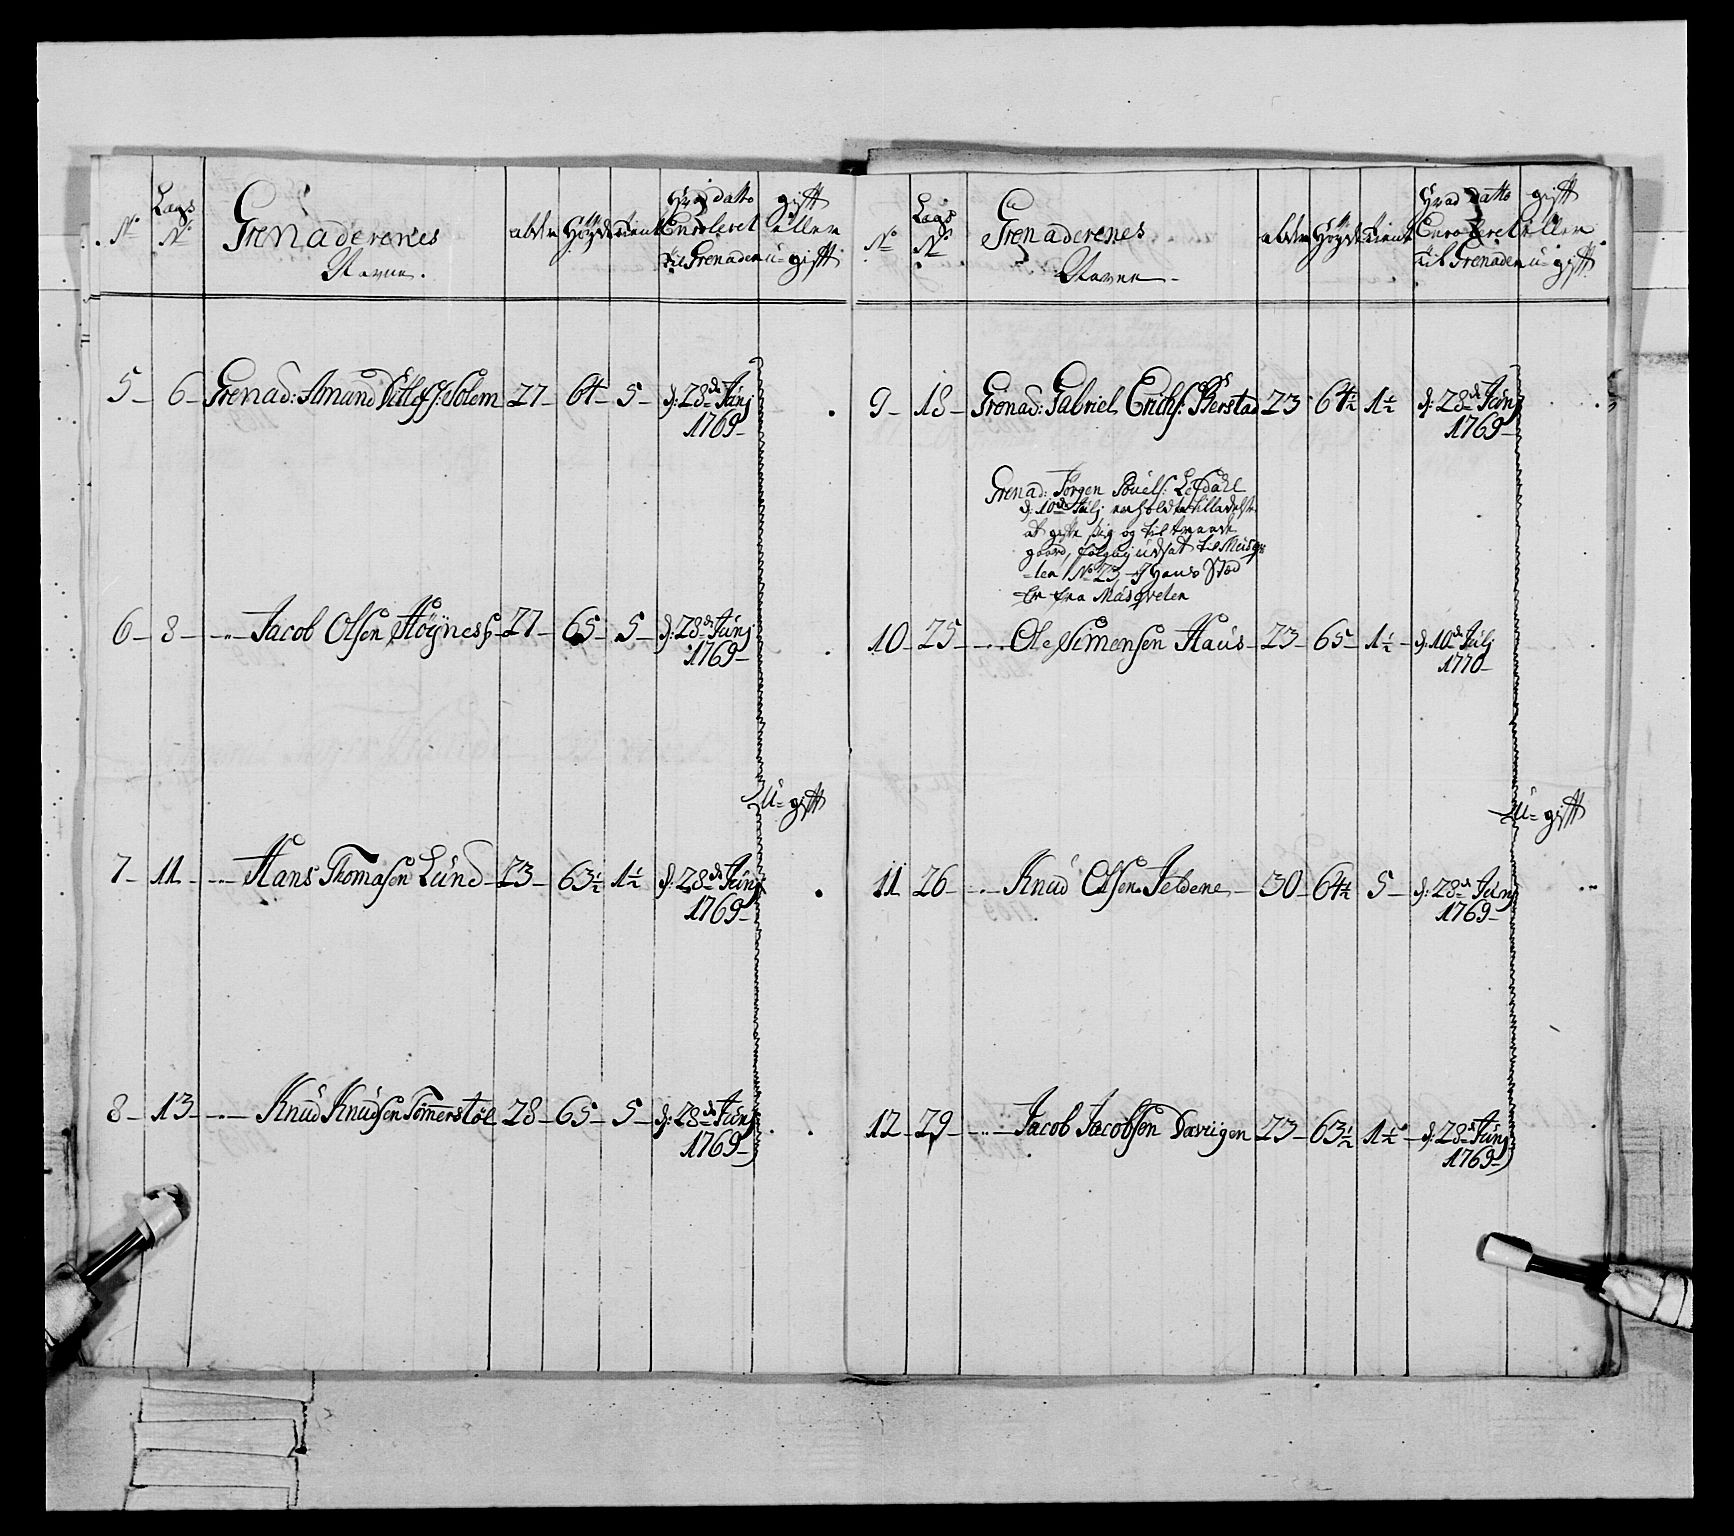 No Lags No Grenaderenes Navne. alder Høyde tient Hvad datto Enroleret til Grenader gift eller u-gift
5 6 Grenad: Amund Ditlefs: Solem 27 64 5 d: 28de Junj 1769
6 8 Jacob Olsen Høyness 27 65 5 d: 28de Junj 1769
U-gift
7 11 Hans Thomasen Lund 23 63½ 1½ d: 28de Junj 1769
8 13 Knud Knudsen Tømerstøe 28 65 5 d: 28de Junj 1769
No Laugs No Grenaderenes Navne alder Høyde tient Hvad datto Enroleret til Grenader gift eller u-gift
9 18 Grenad: Gabriel Erichs: Berstad 23 64½ 1½ d: 28de Junj 1769
Grenad: Jørgen Povels: Lefdahl
d: 10de Julj erholdt tilladelse
at gifte sig og til træde
gaard, følgelig udsat til Musqve
-ter No 23. I Hans Stæd
Er fra Musqveter
10 25 Ole Simensen Haus 23 65 1½ d: 10de Julj 1770
U-gift
11 26 Knud Olsen Jeldene 30 64½ 5 d: 28de Junj 1769
12 29 Jacob Jacobsen Davigen 23 63½ 1½ d: 28de Junj 1769